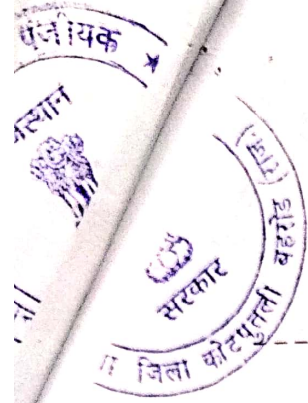 पंजीयक ★
स्थान
सरकार
जिला कोटपुतली बहरोड (राज.)